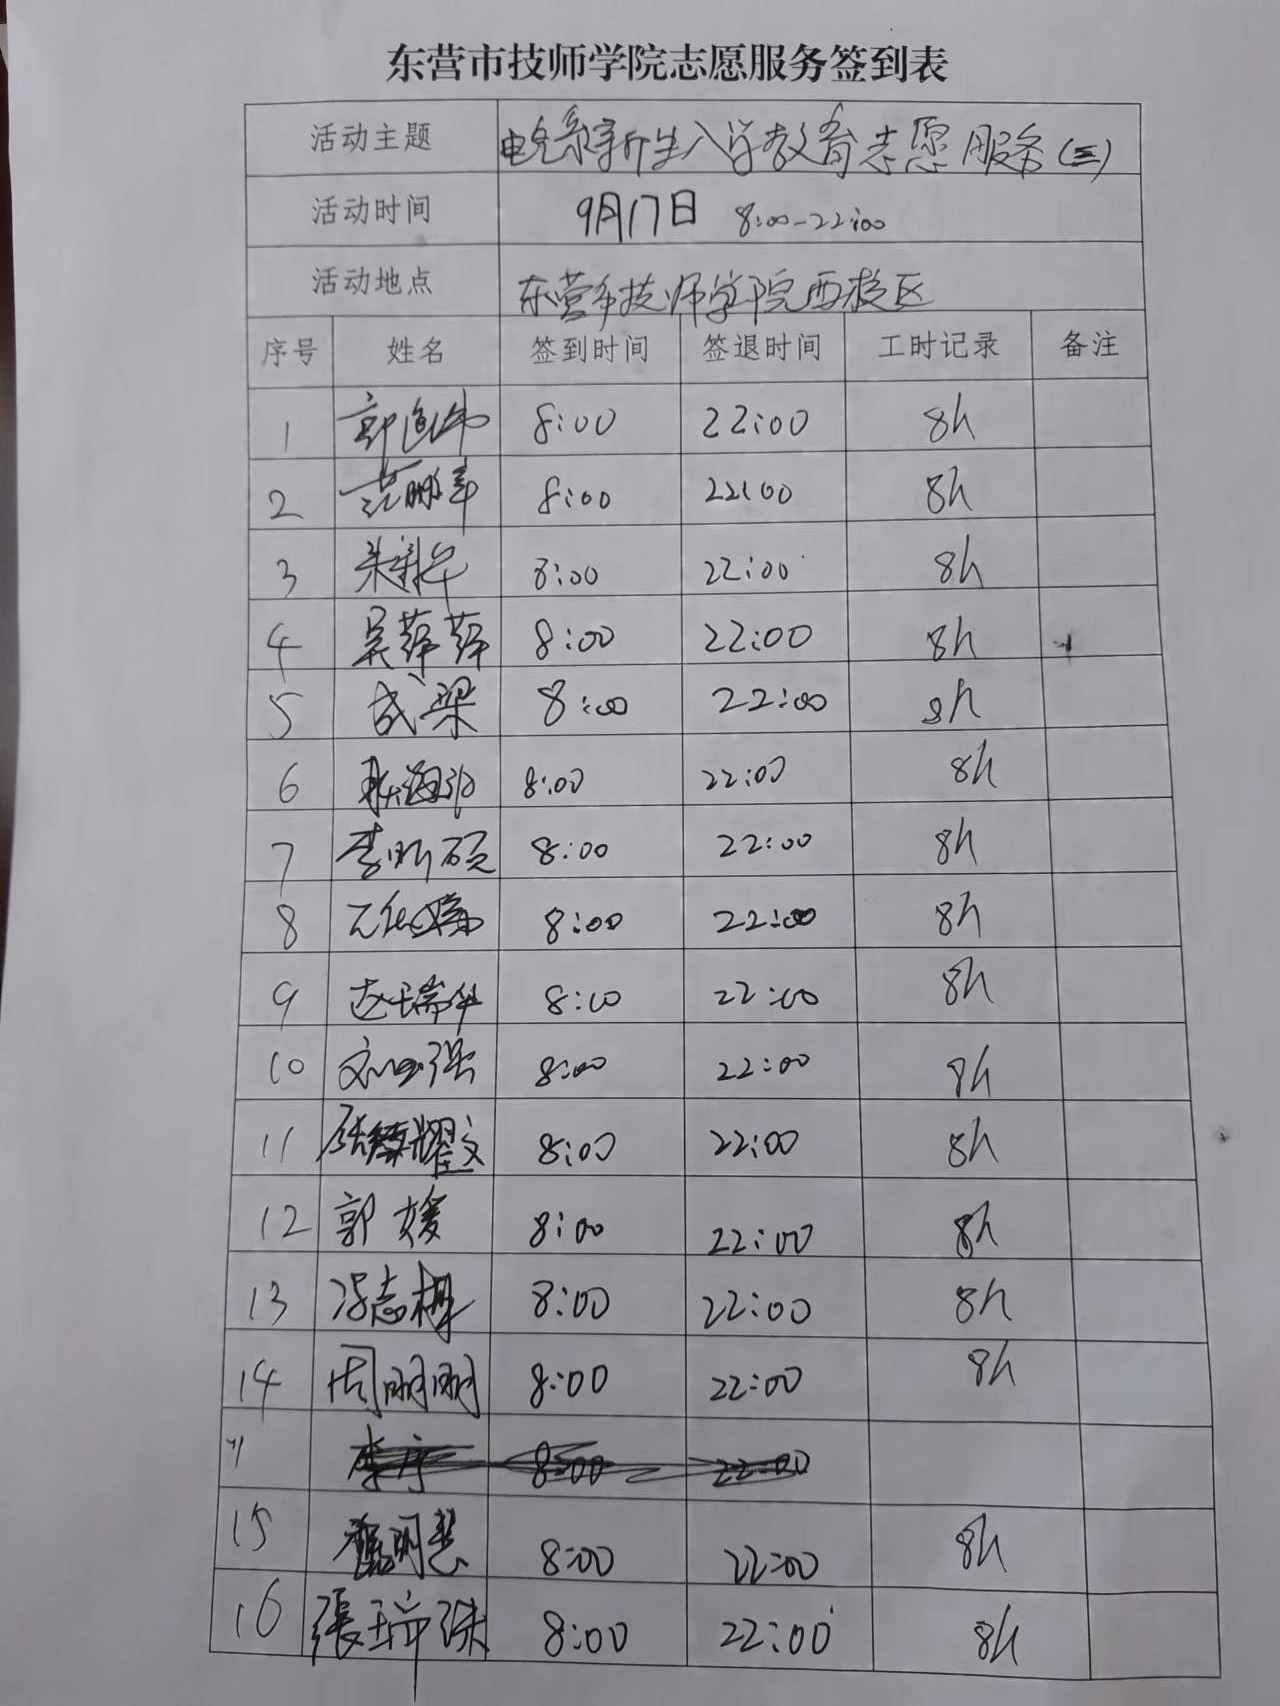 东营市技师学院志愿服务签到表
活动主题 电竞系新生入学教育志愿服务(三)
活动时间 9月17日 8:00-22:00
活动地点 东营市技师学院西校区
序号 姓名 签到时间 签退时间 工时记录 备注
1 8:00 22:00 8h
2 8:00 22:00 8h
3 8:00 22:00 8h
4 吴萍萍 8:00 22:00 8h
5 成梁 8:00 22:00 8h
6 8:00 22:00 8h
7 李昕硕 8:00 22:00 8h
8 8:00 22:00 8h
9 8:00 22:00 8h
10 8:00 22:00 8h
11 8:00 22:00 8h
12 郭媛 8:00 22:00 8h
13 冯志梅 8:00 22:00 8h
14 周丽丽 8:00 22:00 8h
8:00 22:00
15 8:00 22:00 8h
16 張瑞珠 8:00 22:00 8h